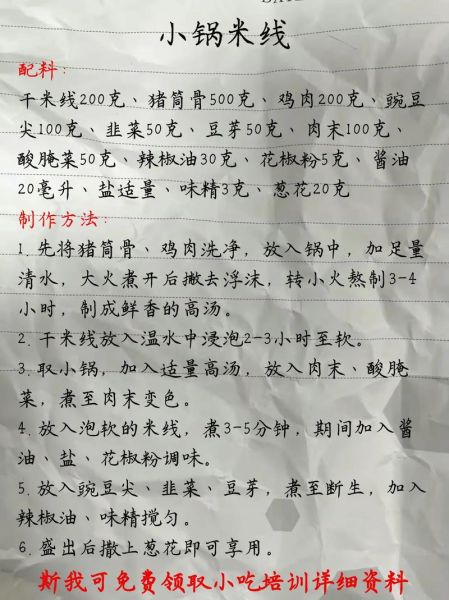 小锅米线
配料:
干米线200克、猪筒骨500克、鸡肉200克、豌豆
尖100克、韭菜50克、豆芽50克、肉末100克、
酸腌菜50克、辣椒油30克、花椒粉5克、酱油
20毫升、盐适量、味精3克、葱花20克
制作方法:
1. 先将猪筒骨、鸡肉洗净，放入锅中，加足量
清水，大火煮开后撇去浮沫，转小火熬制3-4
小时，制成鲜香的高汤。
2. 干米线放入温水中浸泡2-3小时至软。
3. 取小锅，加入适量高汤，放入肉末、酸腌
菜，煮至肉末变色。
4. 放入泡软的米线，煮3-5分钟，期间加入酱
油、盐、花椒粉调味。
5. 放入豌豆尖、韭菜、豆芽，煮至断生，加入
辣椒油、味精搅匀。
6. 盛出后撒上葱花即可享用。
斯我可免费领取小吃培训详细资料